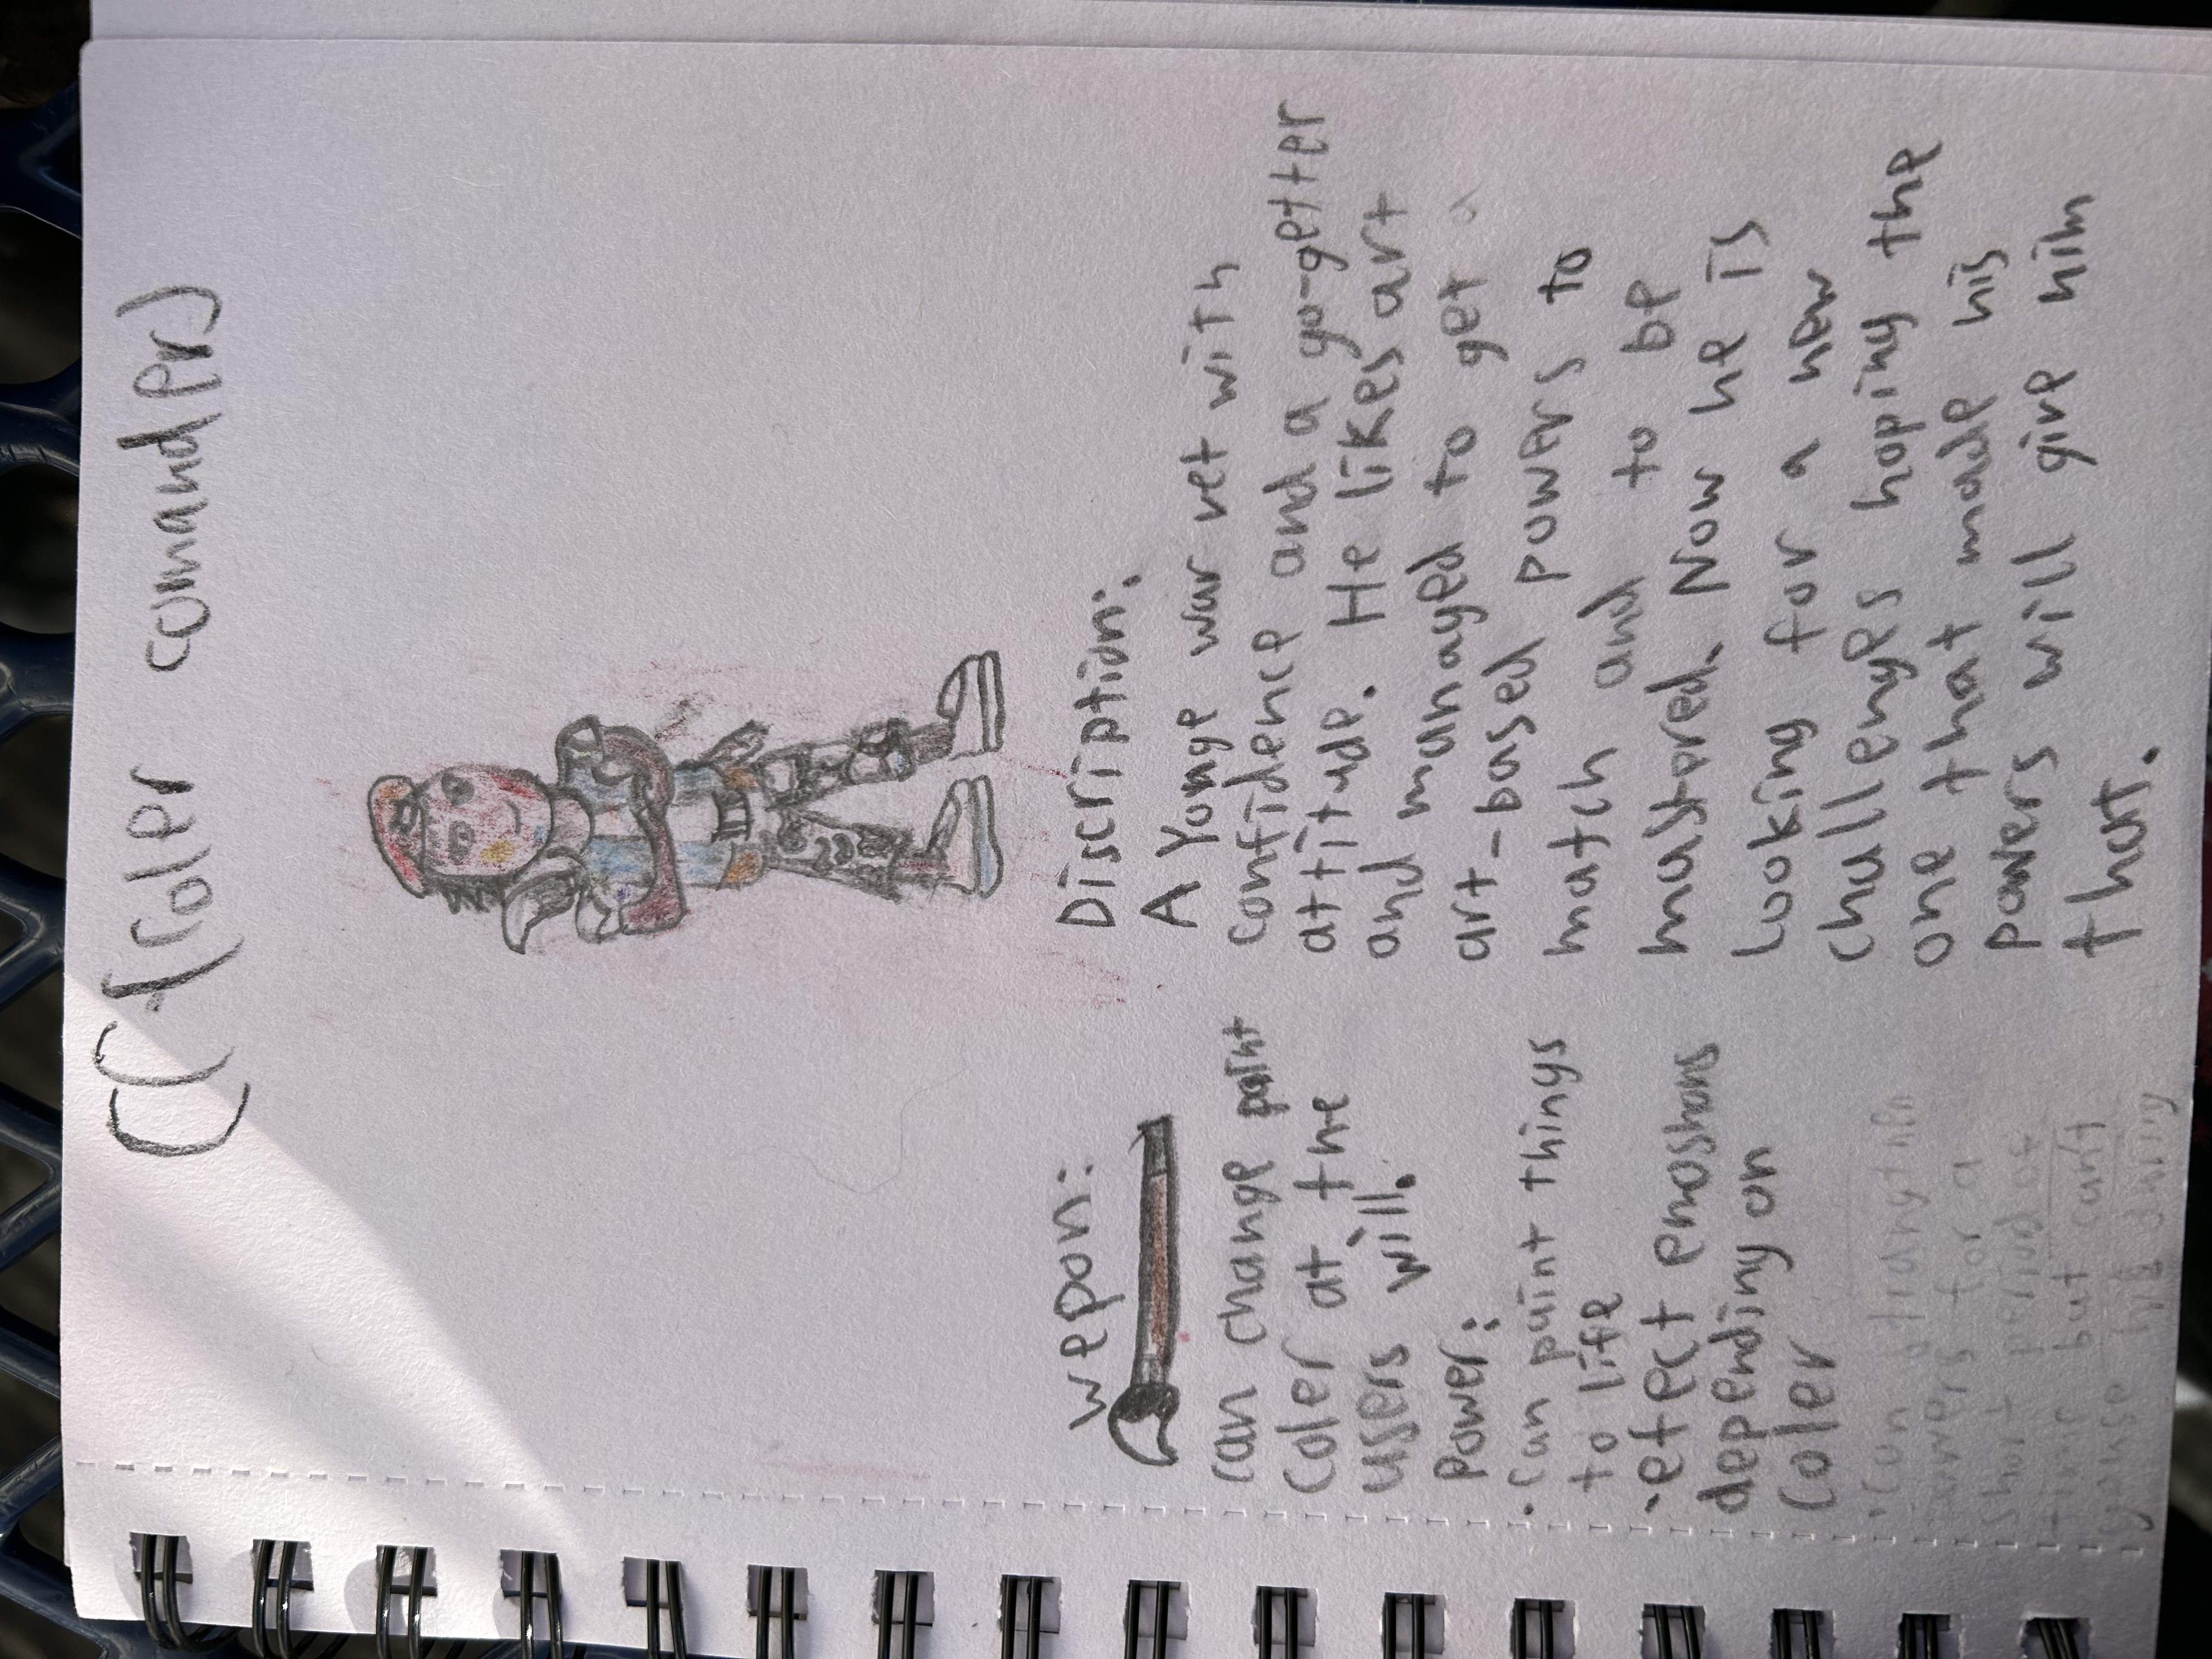 (Coler comander)
wepon:
can change paint
Coler at the
users will.
Power:
• can paint things
to life
• efect emoshons
depending on
Coler
• can strangthen
powers for a
short period of
time but can't
during
Discription:
A Yonge war vet with
confidence and a go-getter
attitude. He likes art
and managed to get a
art-based powers to
match and to be
mastered. Now he is
looking for a new
challenges hoping the
one that made his
powers will give him
that.